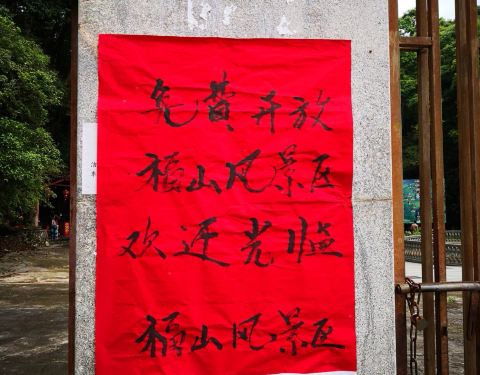 免费开放
福山风景区
欢迎光临
福山风景区